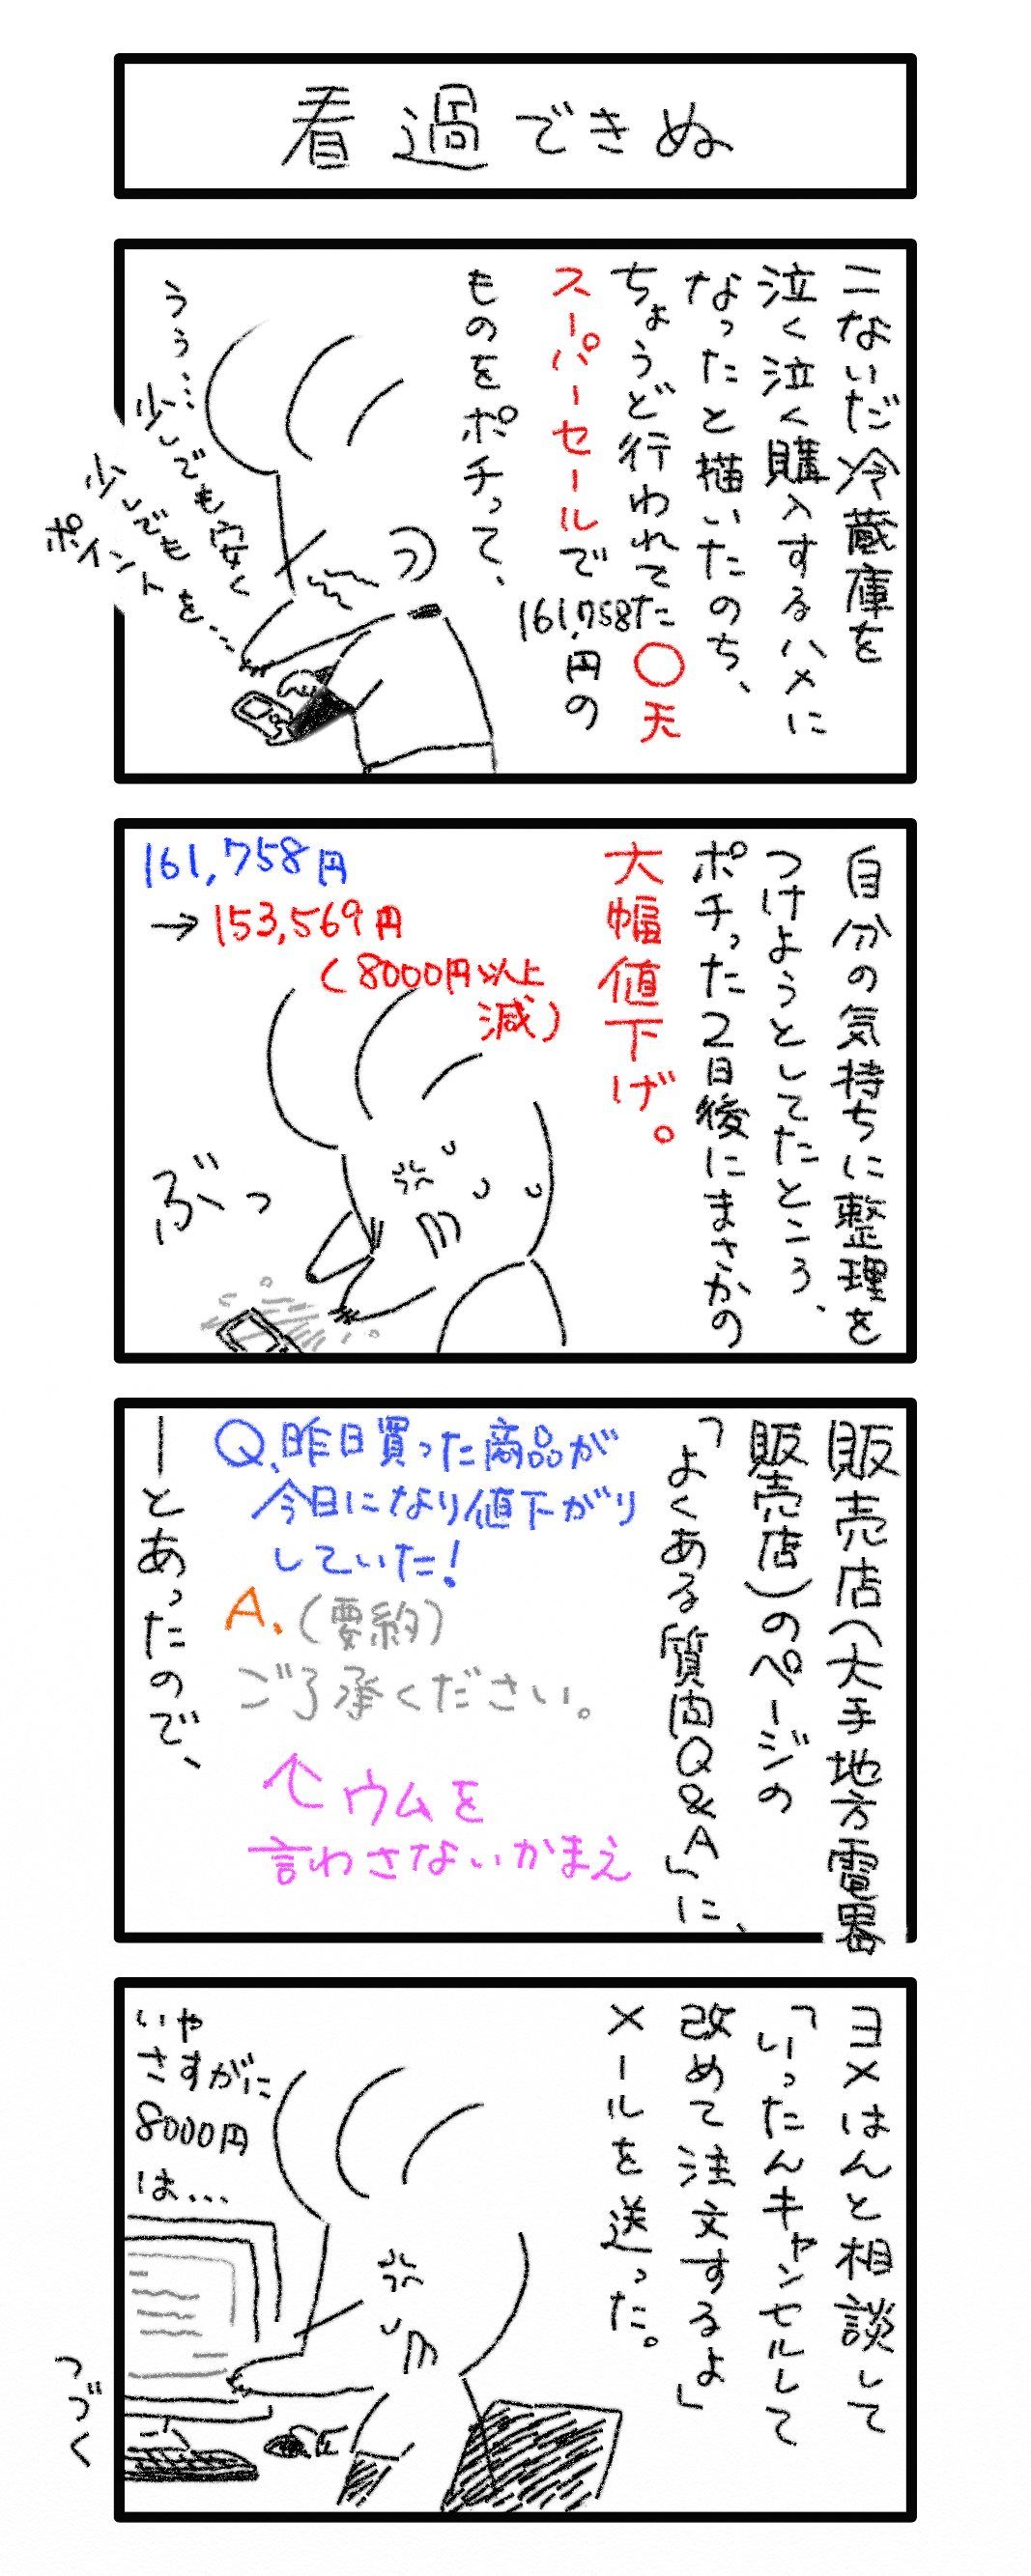 看過できぬ
こないだ冷蔵庫を
泣く泣く購入するハメに
なったと描いたのち、
ちょうど行われてた〇天
スーパーセールで161,758円の
ものをポチって、
うぅ…
少しでも安く
少しでも
ポイントを…
自分の気持ちに整理を
つけようとしてたところ、
ポチった2日後にまさかの
大幅値下げ。
161,758円
→153,569円
(8000円以上
減)
ぶっ
販売店(大手地方電器
販売店)のページの
「よくある質問Q&A」に、
Q.昨日買った商品が
今日になり値下がり
していた!
A.(要約)
ご了承ください。
↑ウムを
言わさないかまえ
—とあったので、
ヨメはんと相談して
「いったんキャンセルして
改めて注文するよ」
メールを送った。
いや
さすがに
8000円
は…
つづく